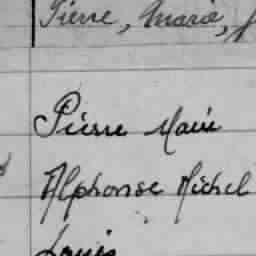 Pierre, Marie,
Pierre Marie
Alphonse Michel
Louis